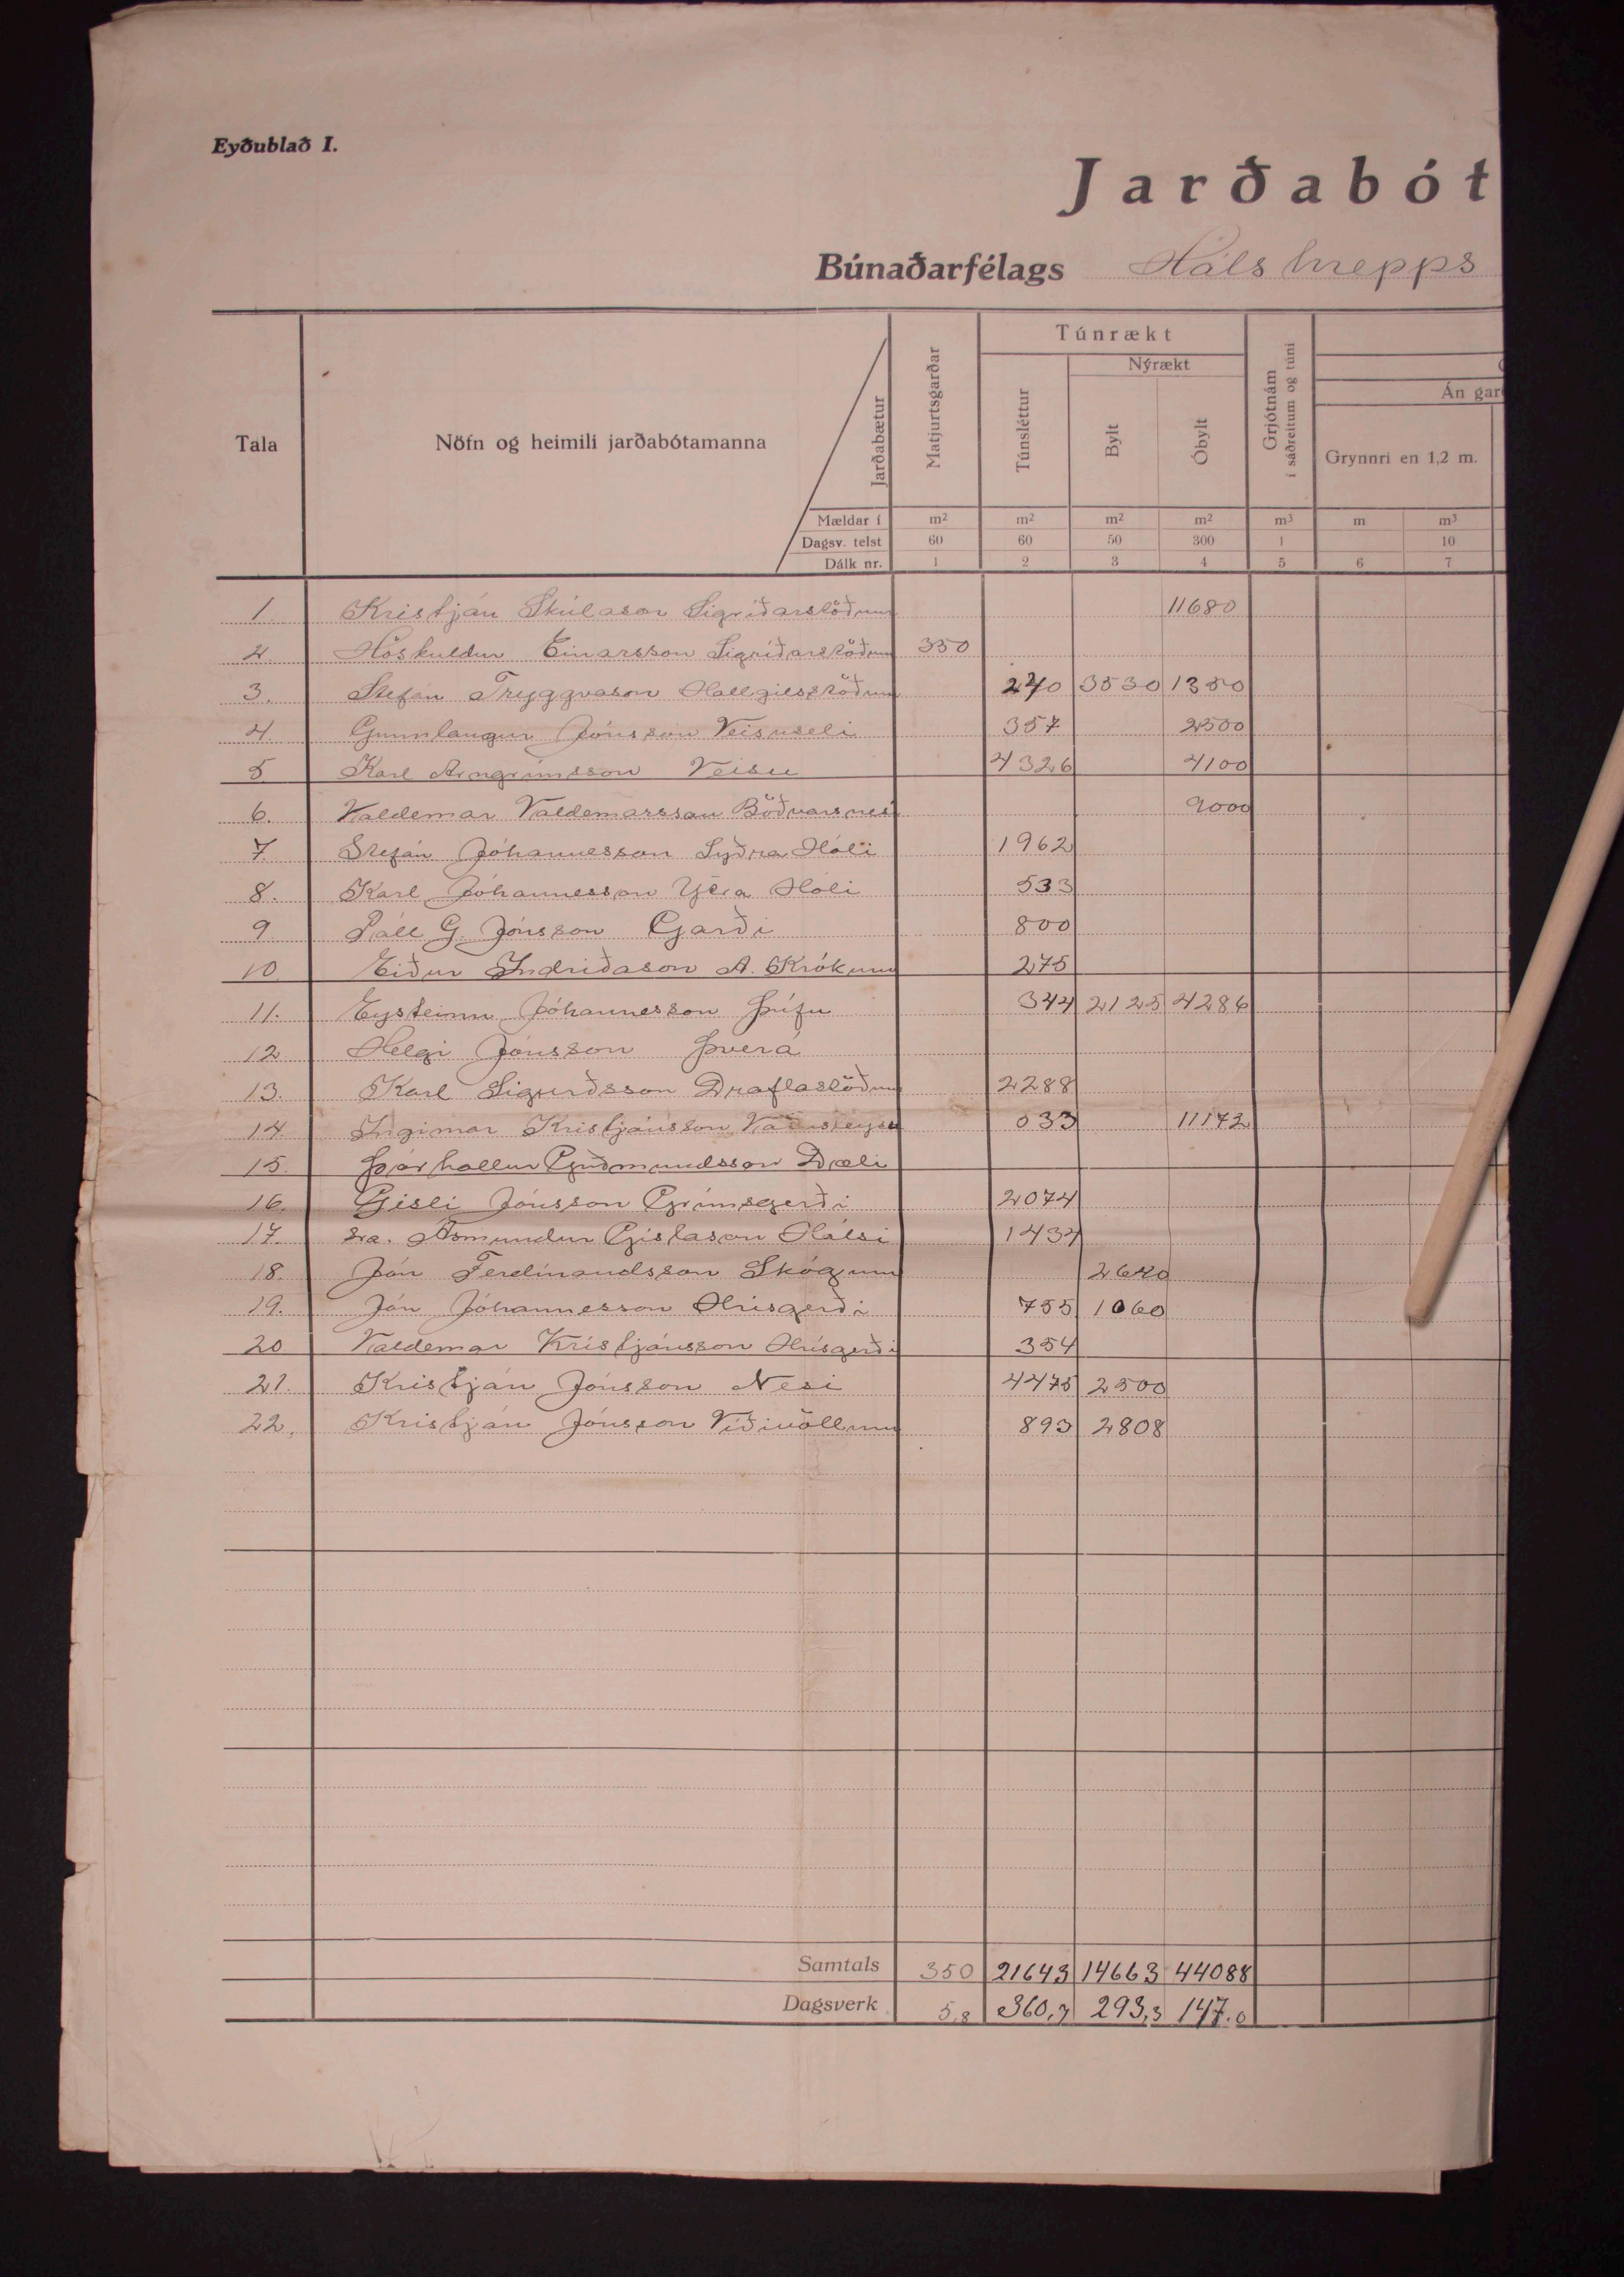 Eyðublað I.
Jarðabót
Búnaðarfélags Háls hrepps
Tala
Nöfn og heimili jarðabótamanna
Jarðabætur
Matjurtsgarðar
Túnrækt
Túnsléttur
Nýrækt
Bylt
Óbylt
Grjótnám
í sáðreitum og túni
Án gar
Grynnri en 1,2 m.
Mældar í m² m² m² m² m³ m m³
Dagsv. telst 60 60 50 300 1 10
Dálk nr. 1 2 3 4 5 6 7
1. Kristján Skúlason Sigríðarstöðum 11680
2. Höskuldur Einarsson Sigríðarstöðum 350
3. Stefán Tryggvason Hallgilsstöðum 240 3530 1350
4. Gunnlaugur Jónsson Veisuseli 357 2500
5 Karl Arngrímsson Veisu 4326 4100
6. Valdemar Valdemarsson Böðvarsnesi 9000
7. Stefán Jóhannesson Syðra Hóli 1962
8. Karl Jóhannesson Ytra Hóli 533
9 Páll G. Jónsson Garði 800
10 Eiður Indriðason A. Krókum 275
11. Eysteinn Jóhannesson Þúfu 344 2125 4286
12 Helgi Jónsson Þverá
13. Karl Sigurðsson Draflastöðum 2288
14. Ingimar Kristjánsson 033 11172
15. Þórhallur Guðmundsson Dæli
16. Gísli Jónsson Grímsgerði 2074
17. sra. Ásmundur Gíslason Hálsi 1434
18. Jón Ferdínandsson Skógum 2640
19. Jón Jóhannesson Hrísgerði 755 1060
20 Valdemar Kristjánsson Hrísgerði 354
21. Kristján Jónsson Nesi 4475 2500
22. Kristján Jónsson Víðivöllum 893 2808
Samtals 350 21643 14663 44088
Dagsverk 5,8 360,7 293,3 147.0